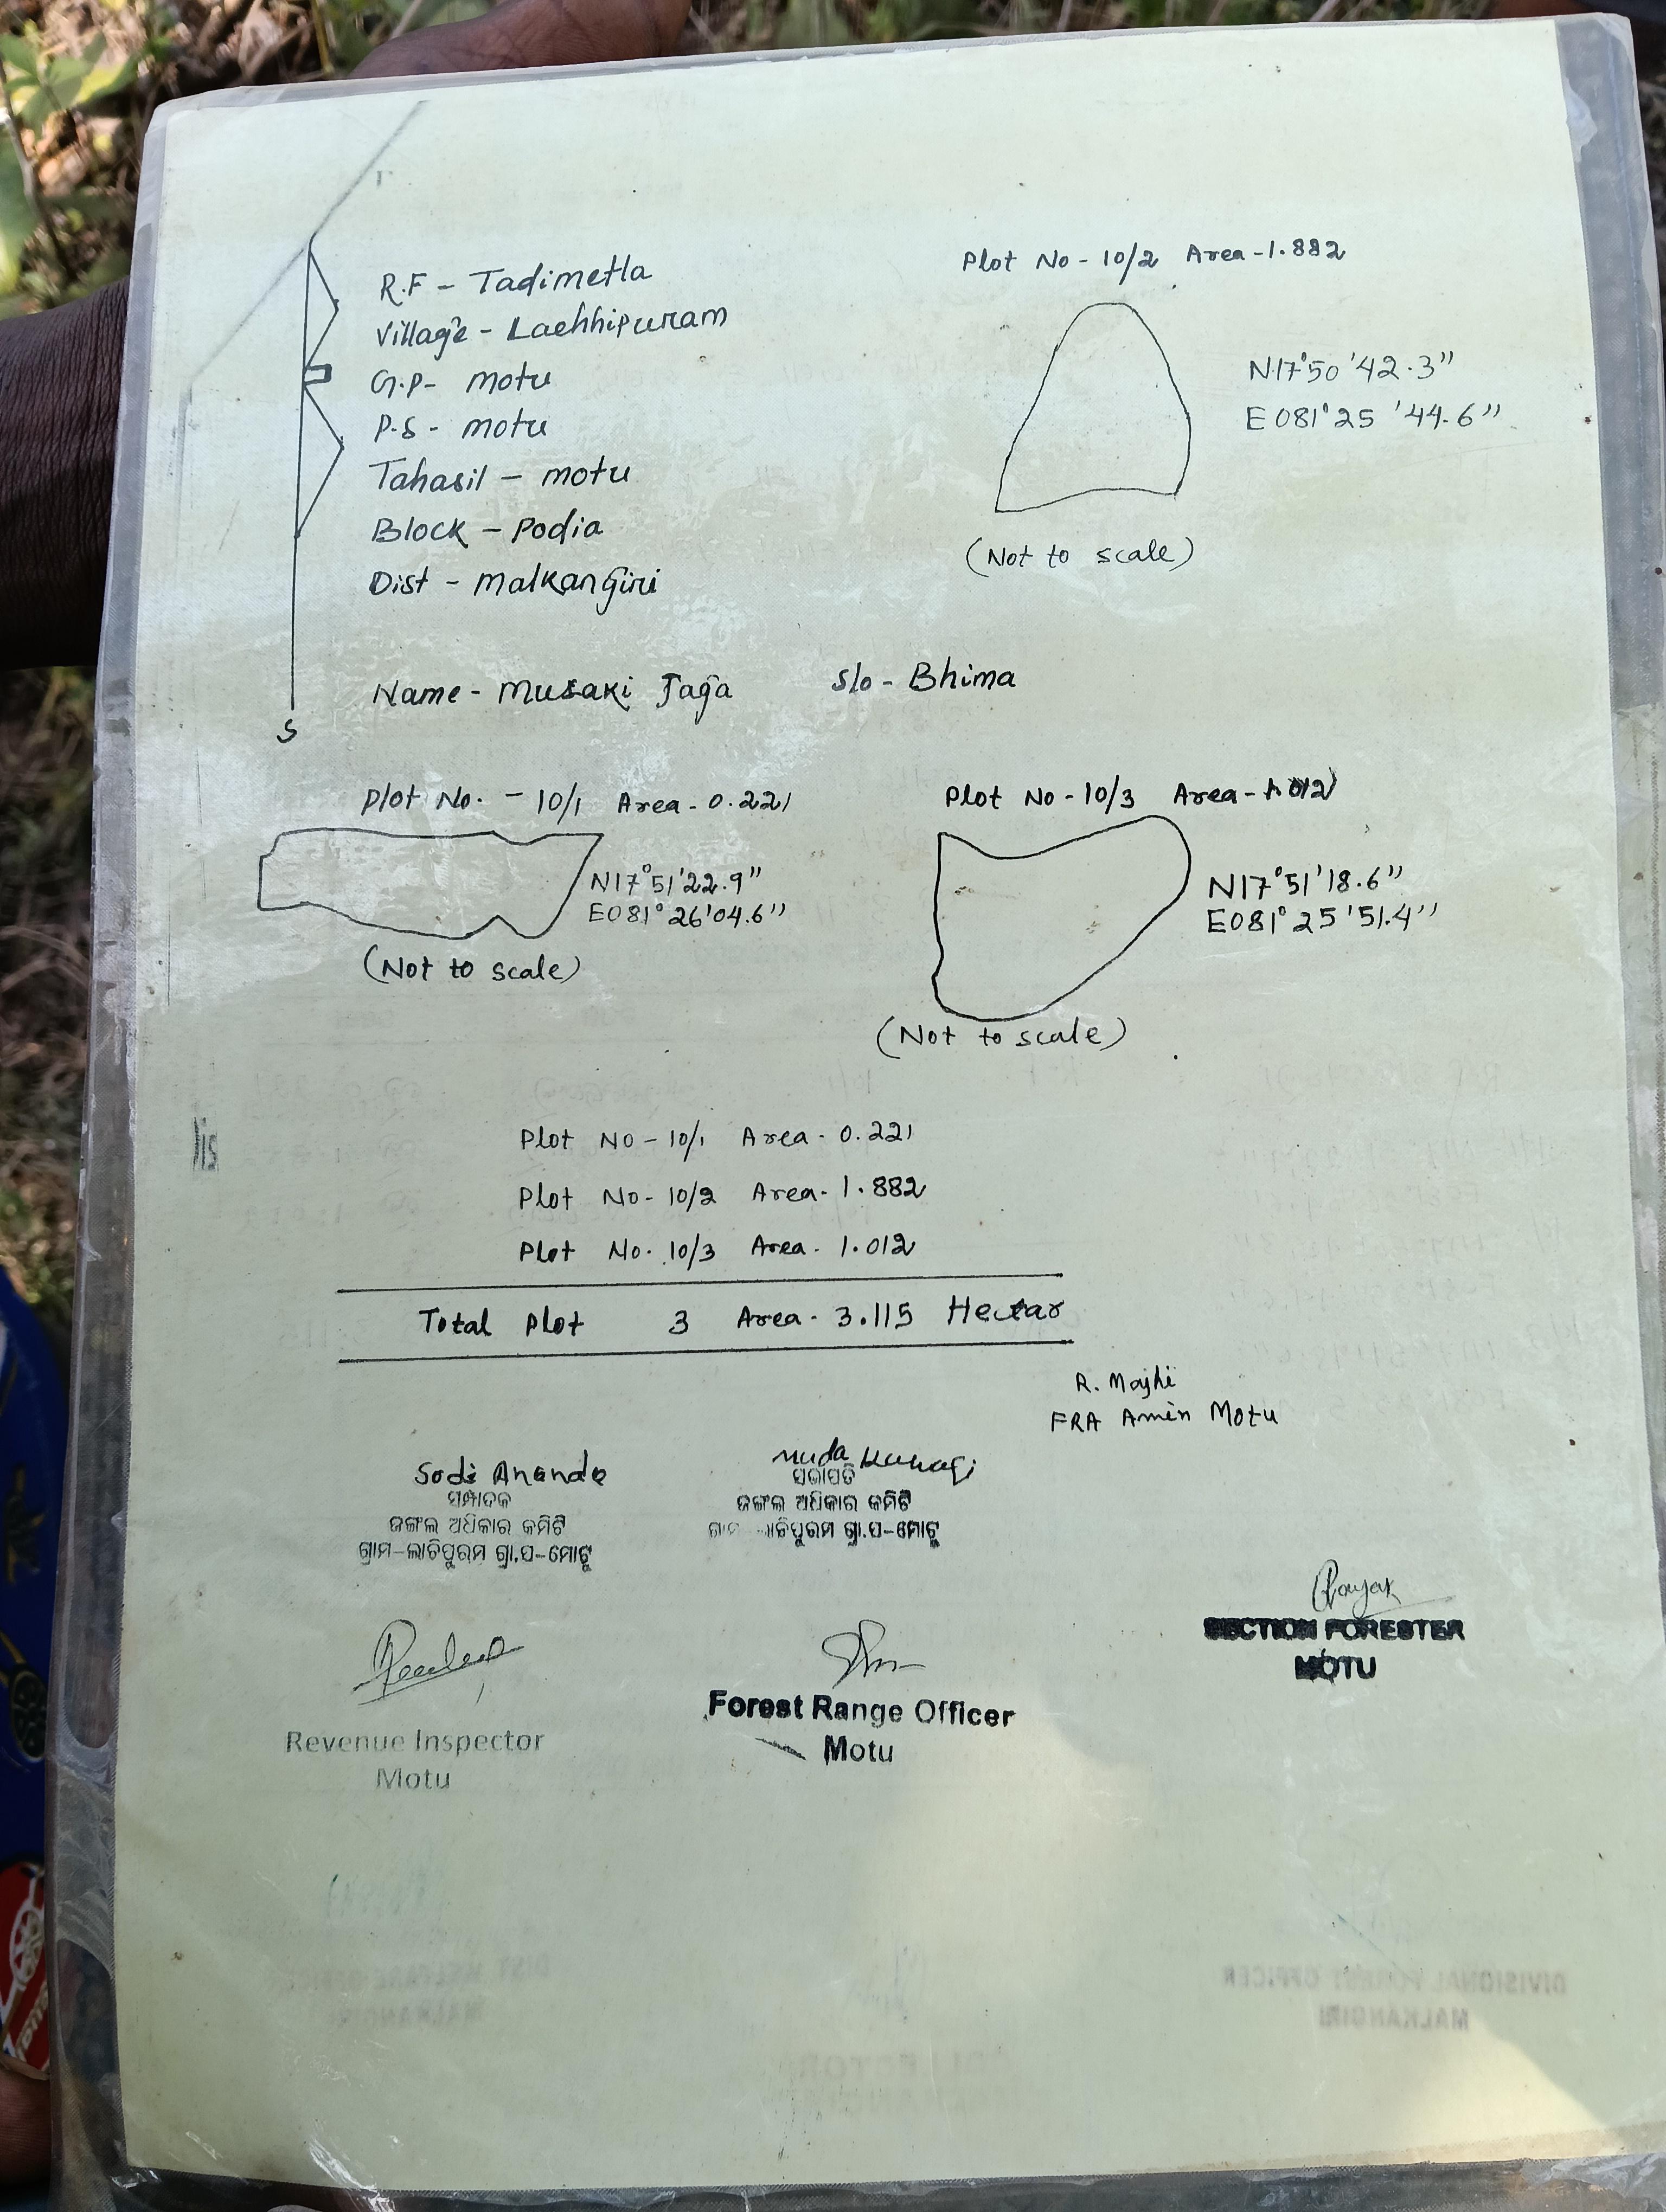 R.F - Tadimetla
Village - Lachhipuram
G.P- motu
P.S - motu
Tahasil - motu
Block - Podia
Dist - malkangiri
Plot No - 10/2 Area -1.882
N17°50'42.3"
E081°25'44.6"
(Not to scale)
Name - Musaki Jaga S/o - Bhima
S
Plot No. - 10/1 Area - 0.221
N17°51'22.9"
E081°26'04.6"
(Not to scale)
Plot No - 10/3 Area - 1.012
N17°51'18.6"
E081°25'51.4"
(Not to scale)
Plot No - 10/1 Area - 0.221
Plot No - 10/2 Area - 1.882
Plot No. 10/3 Area - 1.012
Total Plot 3 Area - 3.115 Hectar
R. Majhi
FRA Amin Motu
Sodi Ananda
ସମ୍ପାଦକ
ଜଙ୍ଗଲ ଅଧିକାର କମିଟି
ଗ୍ରାମ-ଲାଚିପୁରମ ଗ୍ରା.ପ-ମୋଟୁ
Muda
ସଭାପତି
ଜଙ୍ଗଲ ଅଧିକାର କମିଟି
ଗ୍ରାମ-ଲାଚିପୁରମ ଗ୍ରା.ପ-ମୋଟୁ
SECTION FORESTER
MOTU
Revenue Inspector
Motu
Forest Range Officer
Motu
DIST WELFARE OFFICER
MALKANGIRI
DIVISIONAL FOREST OFFICER
MALKANGIRI